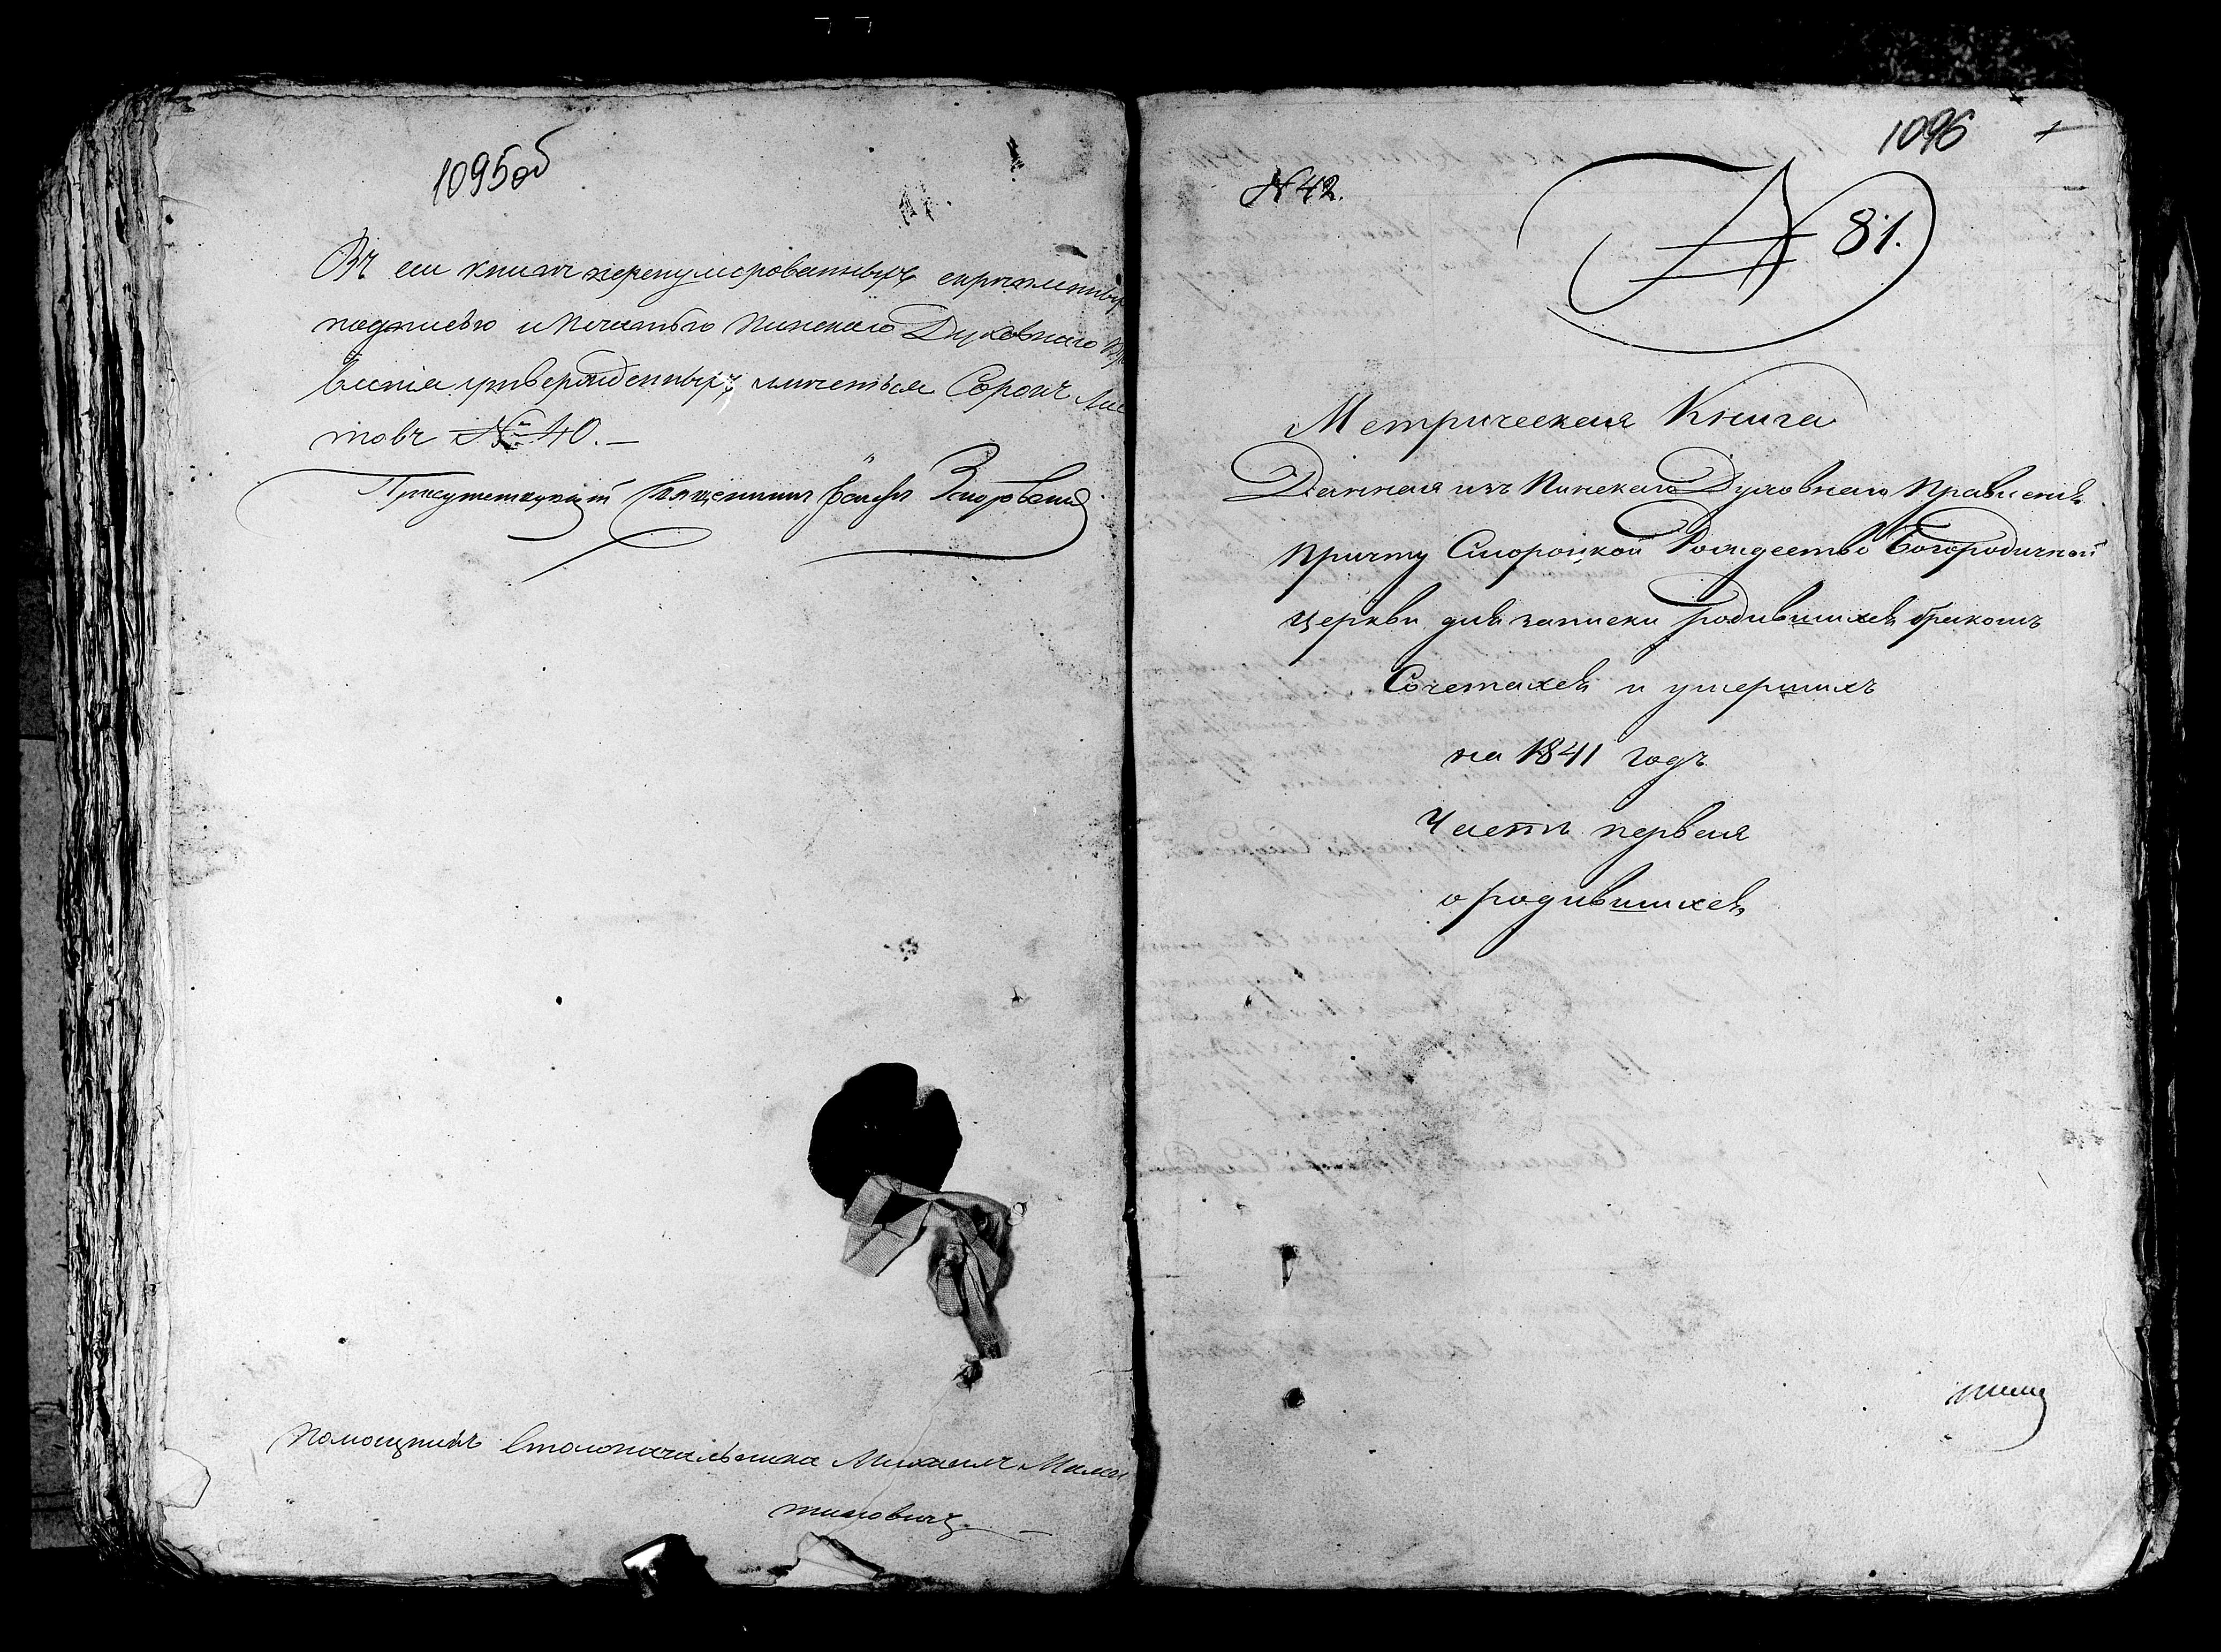 1095об
Въ сей книге перенумерованныхъ скрепленны
подписью и печатью Пинскаго Духовнаго
вленія утвержденныхъ листовъ Сорокъ Лис
товъ № 40. —
Присутствующій Священникъ
Помощникъ Столоначальника Михаилъ
тиновичъ
1096
N 42.
N 81.
Метрическая Книга
Данная изъ Пинскаго Духовнаго Правленія
Причту Сморовской Рождество Богородичной
Церкви для записки родившихся бракомъ
Сочетахся и умершихъ
на 1841 годъ
Часть первая
о родившихся